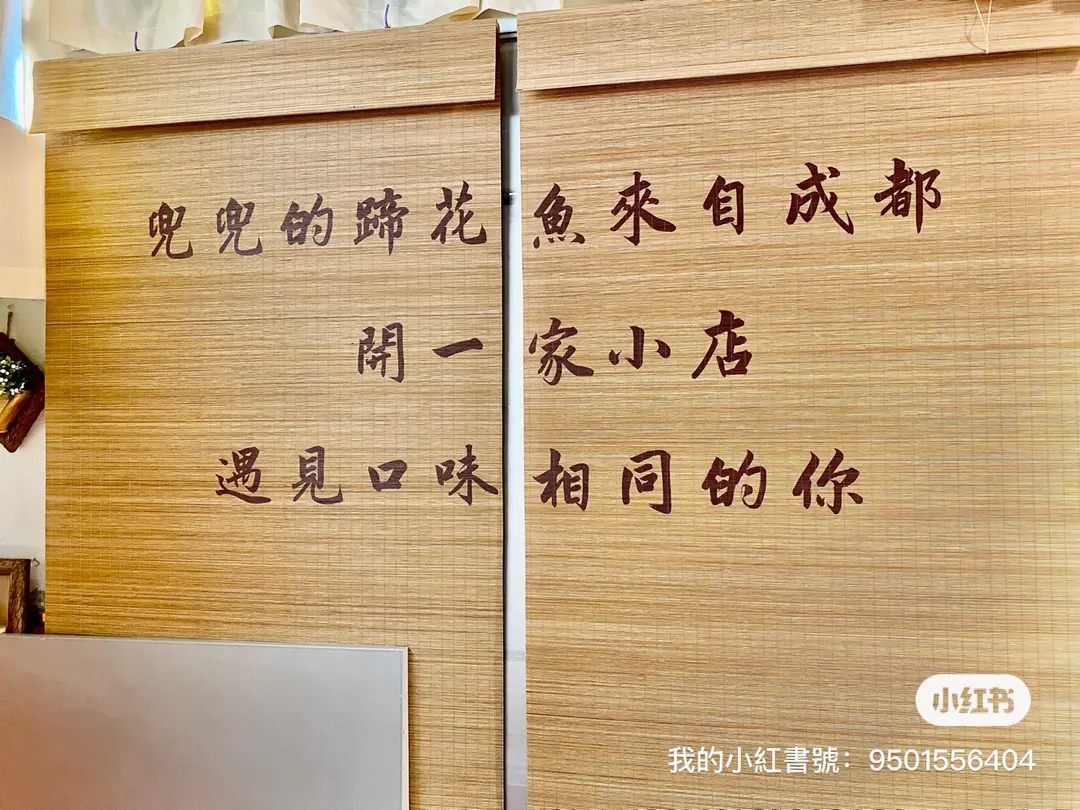 兜兜的蹄花魚來自成都
開一家小店
遇見口味相同的你
小红书
我的小紅書號：9501556404